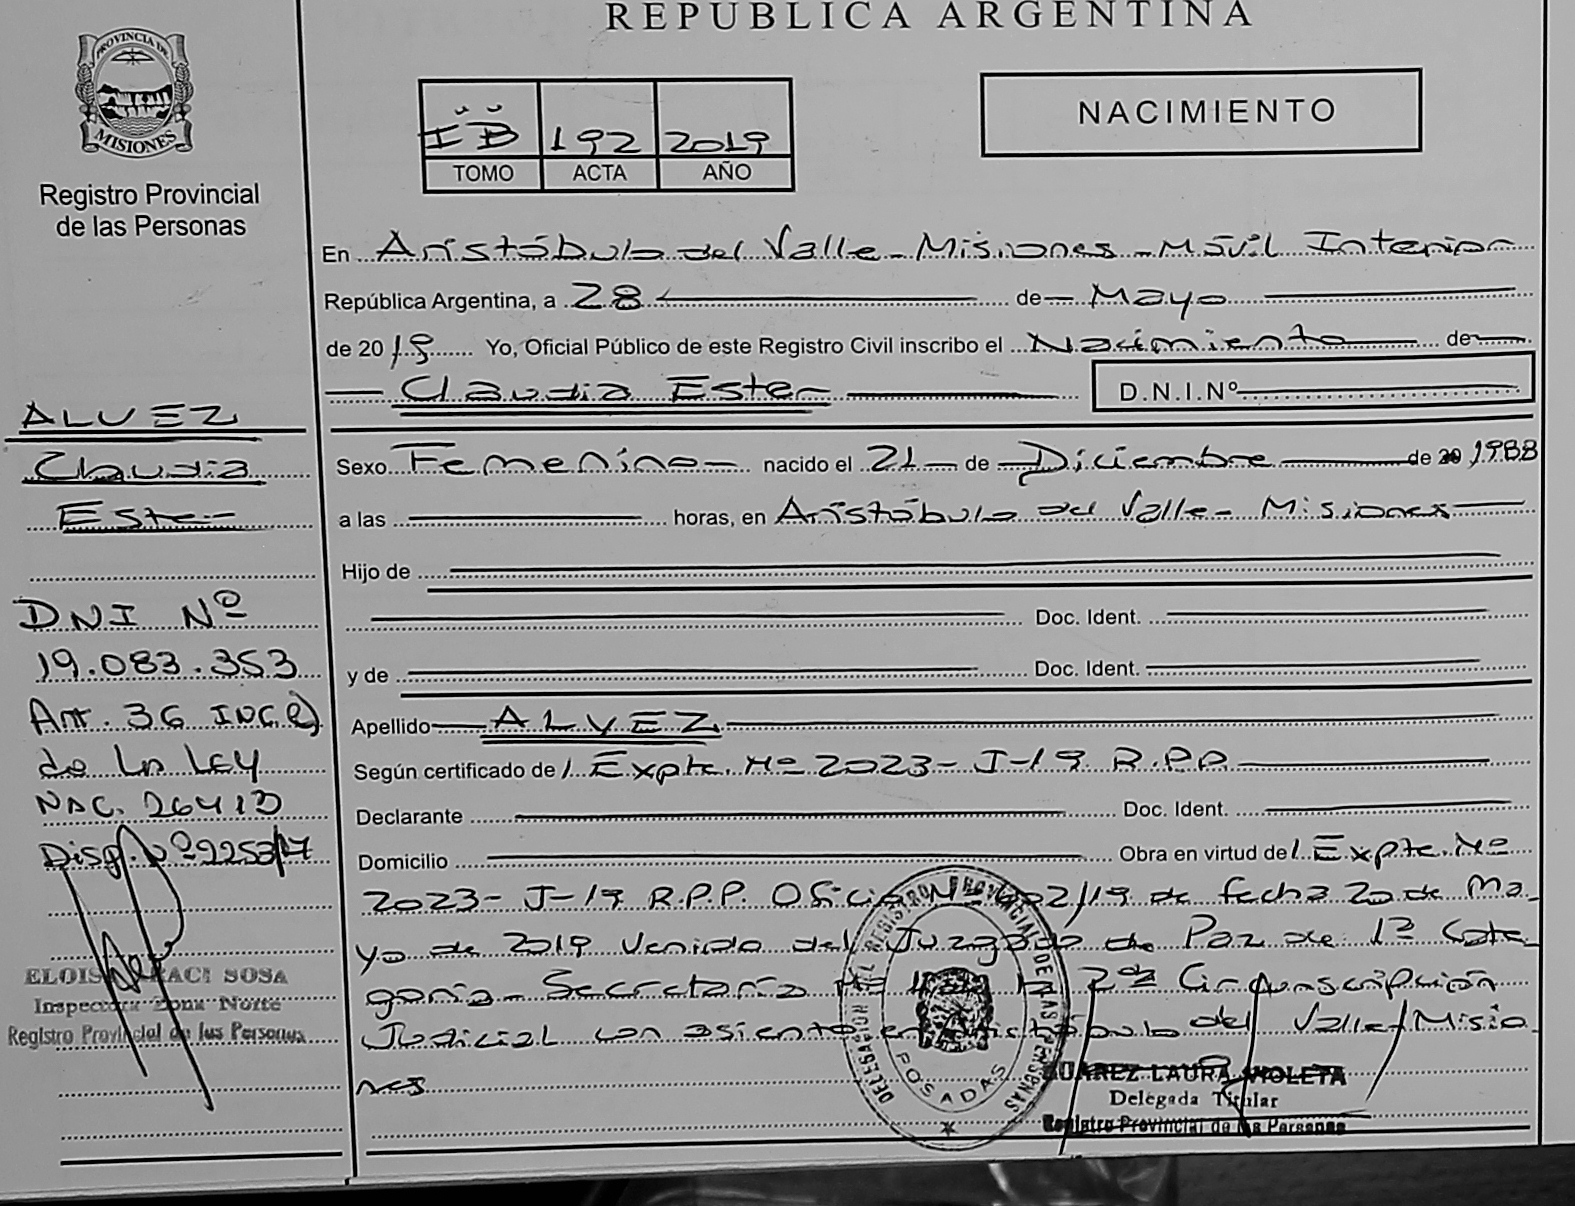 REPUBLICA ARGENTINA
PROVINCIA DE
MISIONES
Registro Provincial
de las Personas
IB 192 2019
TOMO ACTA AÑO
NACIMIENTO
En Aristóbulo del Valle - Misiones - Móvil Interior
República Argentina, a 28 de Mayo
de 2019 Yo, Oficial Público de este Registro Civil inscribo el Nacimiento de
Claudia Ester
D.N.I.Nº
Sexo Femenino nacido el 21 de Diciembre de 20 1988
a las horas, en Aristóbulo del Valle - Misiones
Hijo de
Doc. Ident.
y de Doc. Ident.
Apellido ALVEZ
Según certificado de /. Expte. Nº 2023- J-19 R.P.P.
Declarante Doc. Ident.
Domicilio Obra en virtud de /. Expte. Nº
2023- J-19 R.P.P. Oficio Nº /19 de fecha 20 de Ma
yo de 2019 Venido del Juzgado de Paz de 1ª Cate
goría - Secretaría 2da Circunscripción
Judicial con asiento en Aristóbulo del Valle / Misio
nes
ALVEZ
Claudia
Ester
DNI Nº
19.083.353
Art. 36 INC. e)
de la Ley
NAC. 26413
Disp. Nº
ELOISA SOSA
Inspectora Zona Norte
Registro Provincial de las Personas
REGISTRO PROVINCIAL DE LAS PERSONAS
POSADAS
SUAREZ LAURA VIOLETA
Delegada Titular
Registro Provincial de las Personas